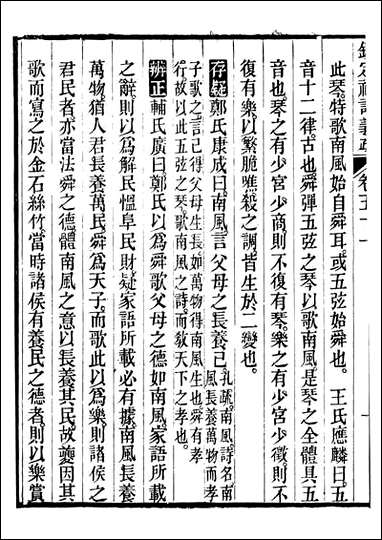 欽定禮記義疏 卷五十一
此琴特歌南風始自舜耳或五弦始舜也 王氏應麟曰五
音十二律古也舜彈五弦之琴以歌南風是琴之全體具五
音也琴之有少宮少商則不復有琴樂之有少宮少徵則不
復有樂以繁脆噍殺之調皆生於二變也
存疑鄭氏康成曰南風言父母之長養已孔疏南風詩名南風長養萬物而孝
子歌之言已得父母生長如萬物得南風生也舜有孝
行故以此五弦之琴歌南風之詩而敎天下之孝也
辨正輔氏廣曰鄭氏以為舜歌父母之德如南風家語所載
之辭則以為解民慍阜民財疑家語所載必有據南風長養
萬物猶人君長養萬民舜為天子而歌此以為樂則諸侯之
君民者亦當法舜之德體南風之意以長養其民故夔因其
歌而寫之於金石絲竹當時諸侯有養民之德者則以樂賞